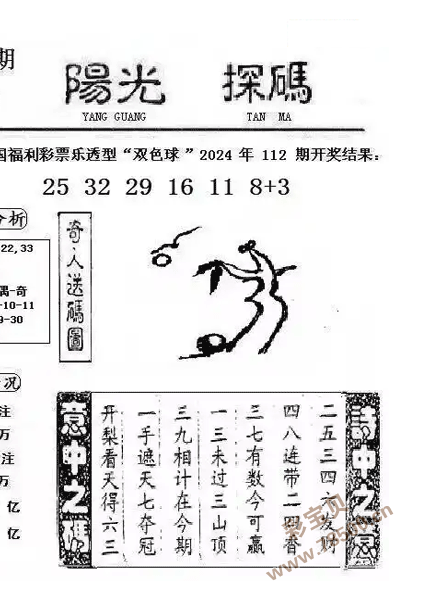 期
陽光 探碼
YANG GUANG TAN MA
国福利彩票乐透型“双色球”2024 年 112 期开奖结果:
25 32 29 16 11 8+3
分析
22,33
偶-奇
-10-11
9-30
奇·人送碼圖
情况
注
万
注
万
亿
亿
诗中之意
二五三四六发财
四八连带二四春
三七有数今可赢
一三未过三山顶
三九相计在今期
一手遮天七夺冠
开梨看天得六三
意中之碼
彩宝贝